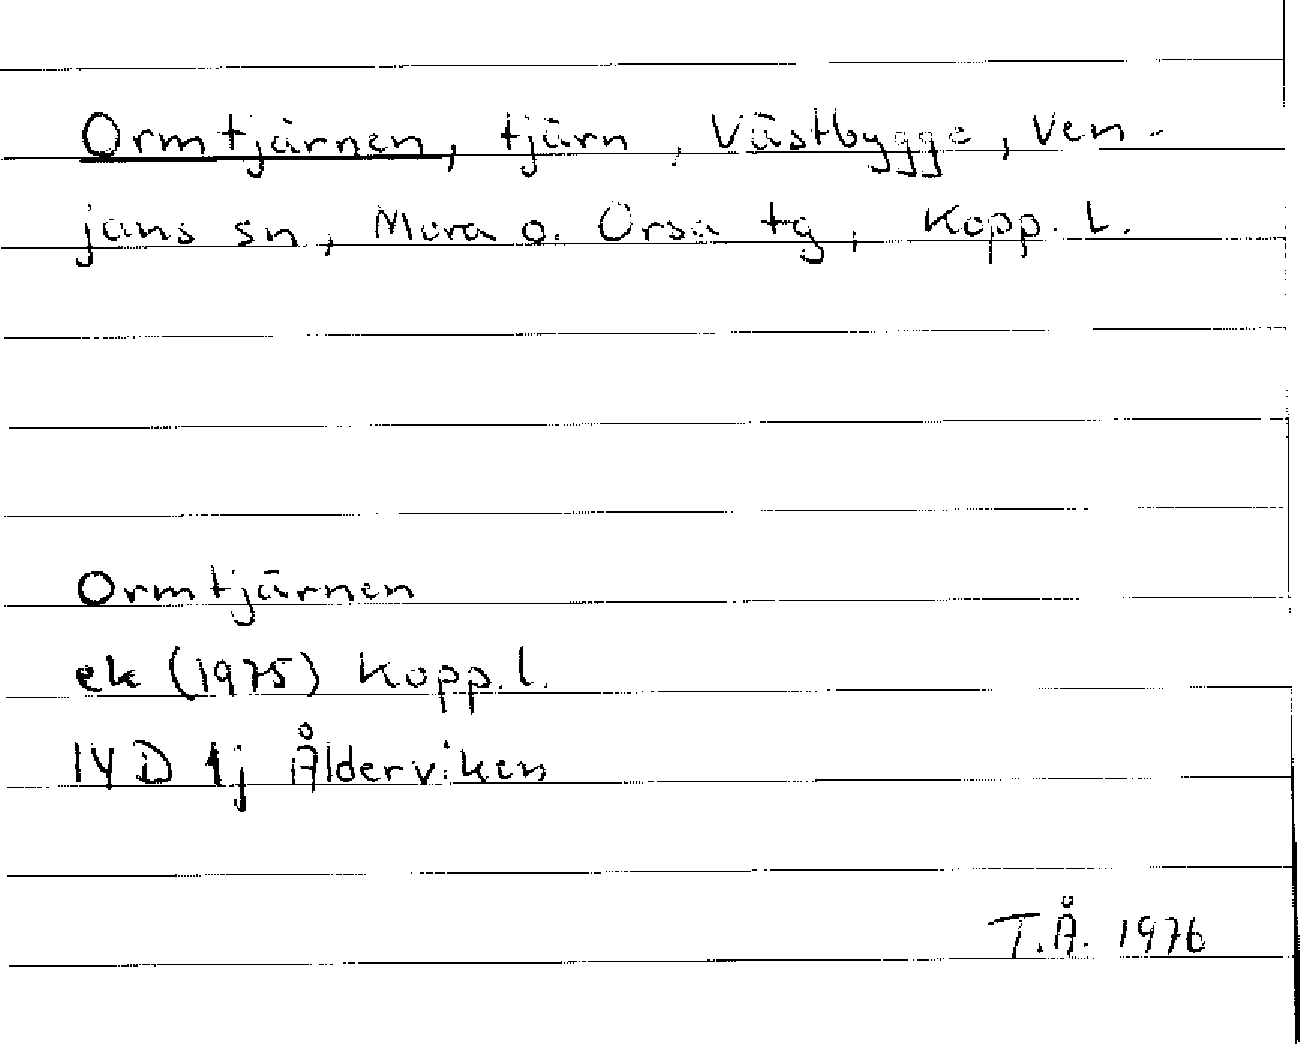 Ormtjärnen, tjärn, Västbygge, Ven-
jans sn, Mora o. Orsa tg, Kopp. L.
Ormtjärnen
ek (1975) Kopp. l.
14 D 1j Ålderviken
T.Å. 1976